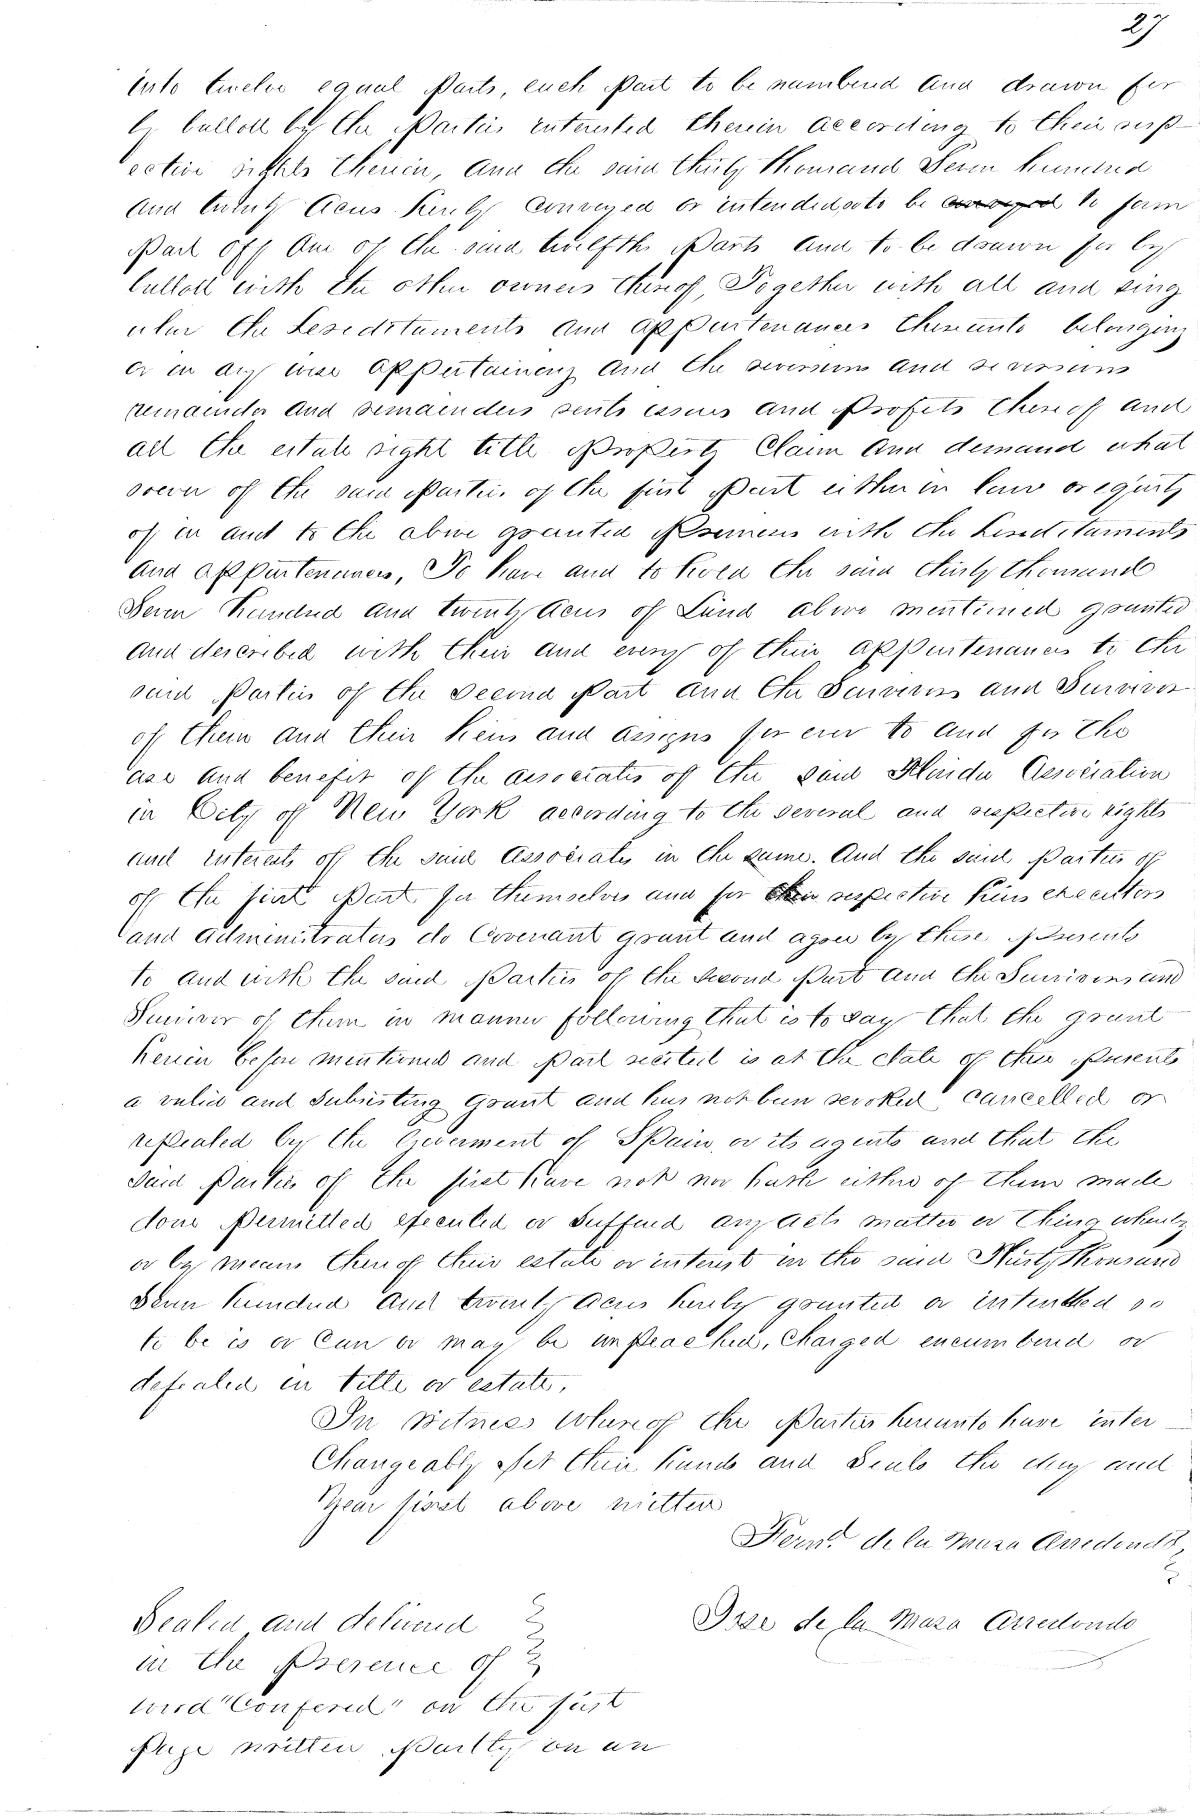 27
into twelve equal Parts, each Part to be numbered and drawn for
by ballott by the Parties interested therein according to their resp-
ective rights therein, and the said thirty thousand Seven hundred
and twenty Acres hereby conveyed or intended so to be to form
Part off One of the said twelfth Parts and to be drawn for by
ballott with the other owners thereof, Together with all and sing
ular the hereditaments and appurtenances thereunto belonging
or in any wise appertaining and the reversion and reversions
remainder and remainders rents issues and Profits thereof and
all the estate right title Property Claim and demand what
soever of the said Parties of the first Part either in law or equity
of in and to the above granted Premises with the hereditaments
and appurtenances, To have and to hold the said thirty thousand
Seven hundred and twenty Acres of Land above mentioned granted
and described with their and every of their appurtenances to the
said Parties of the Second Part and the Survivors and Survivor
of them and their heirs and assigns for ever to and for the
use and benefit of the associates of the said Florida Association
in City of New York according to the several and respective rights
and interests of the said Associates in the same. And the said Parties of
of the first Part for themselves and for their respective heirs executors
and administrators do Covenant grant and agree by these Presents
to and with the said Parties of the Second Part and the Survivors and
Survivor of them in manner following that is to say that the grant
herein before mentioned and Part recited is at the date of these Presents
a valid and subsisting grant and has not been revoked cancelled or
repealed by the Goverment of Spain or its agents and that the
said Parties of the first have not nor hath either of them made
done Permitted executed or suffered any acts matter or thing whereby
or by means thereof their estate or interest in the said Thirty Thousand
Seven hundred and twenty Acres hereby granted or intended so
to be is or can or may be impeached, Charged encumbered or
defeated in title or estate.
In witness Whereof the Parties hereunto have inter-
Changeably Set their hands and Seals the day and
Year first above written
Fern.d de la Maza Arredondo
Sealed and delivered
Jose de la Maza Arredondo
in the Presence of
word "Confered" on the first
Page written Partly on an